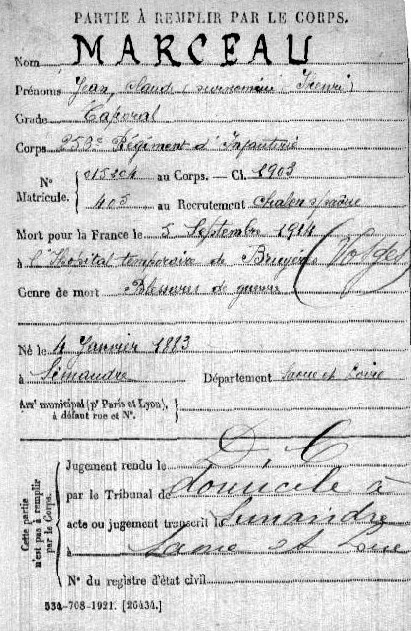 PARTIE À REMPLIR PAR LE CORPS.
Nom MARCEAU
Prénoms Jean, Claud (surnommé Henri)
Grade Caporal
Corps 253e Régiment d'Infanterie
N° Matricule. 015204 au Corps. — Cl. 1903
405 au Recrutement Chalon s/ Saône
Mort pour la France le 5 Septembre 1914
à l'Hôpital temporaire de Bruyères (Vosges)
Genre de mort Blessures de guerre
Né le 4 Janvier 1883
à Simandre Département Saone et Loire
Arrt municipal (pr Paris et Lyon),
à défaut rue et N°.
Cette partie n'est pas à remplir par le Corps.
D C
Jugement rendu le
par le Tribunal de domicile à
acte ou jugement transcrit le Simandre
à Saone et Loire
N° du registre d'état civil
534-708-1921. [26434.]